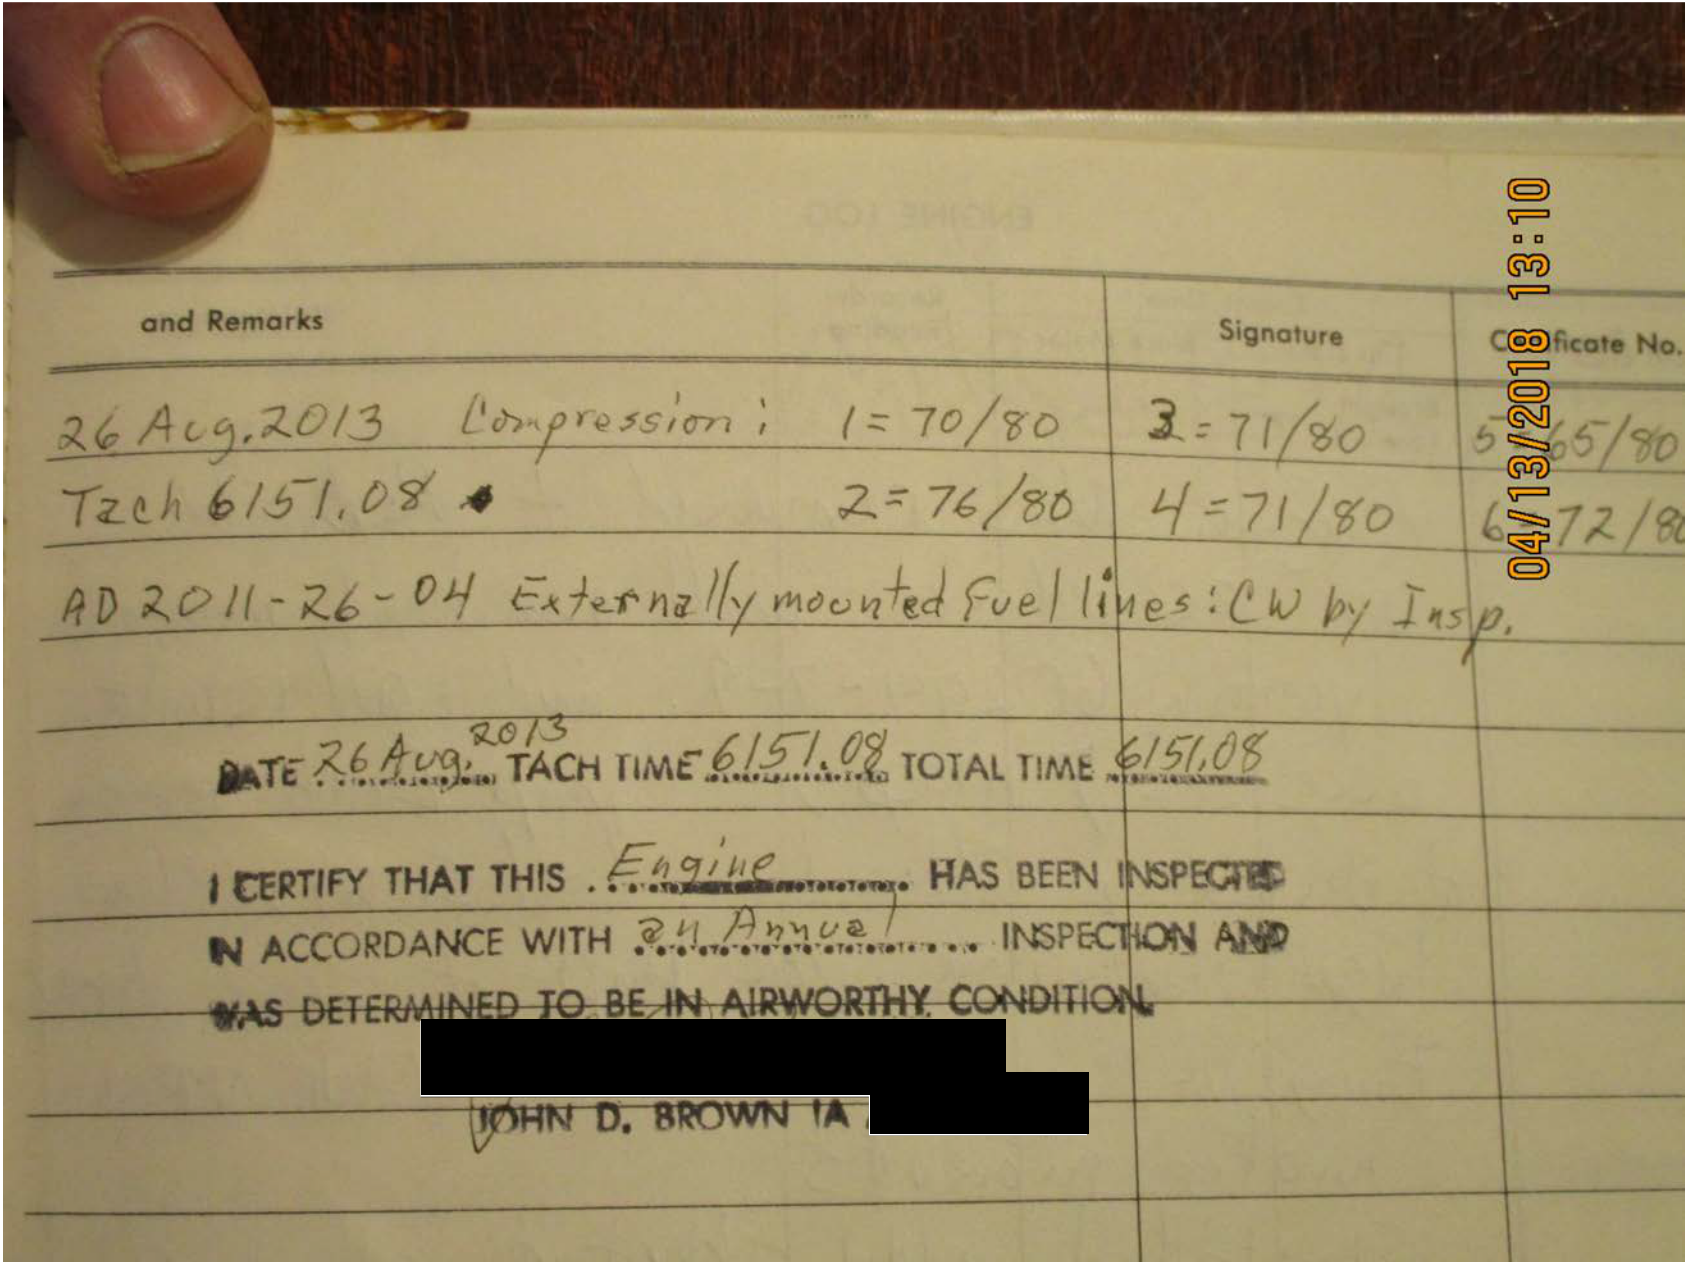 ENGINE LOG
and Remarks Signature Certificate No.
26 Aug. 2013 Compression: 1 = 70/80 3 = 71/80 5 = 65/80
Tach 6151.08 2 = 76/80 4 = 71/80 6 = 72/80
AD 2011-26-04 Externally mounted Fuel lines: CW by Insp.
DATE 26 Aug. 2013 TACH TIME 6151.08 TOTAL TIME 6151.08
I CERTIFY THAT THIS Engine HAS BEEN INSPECTED
IN ACCORDANCE WITH an Annual INSPECTION AND
WAS DETERMINED TO BE IN AIRWORTHY CONDITION.
JOHN D. BROWN IA
04/13/2018 13:10